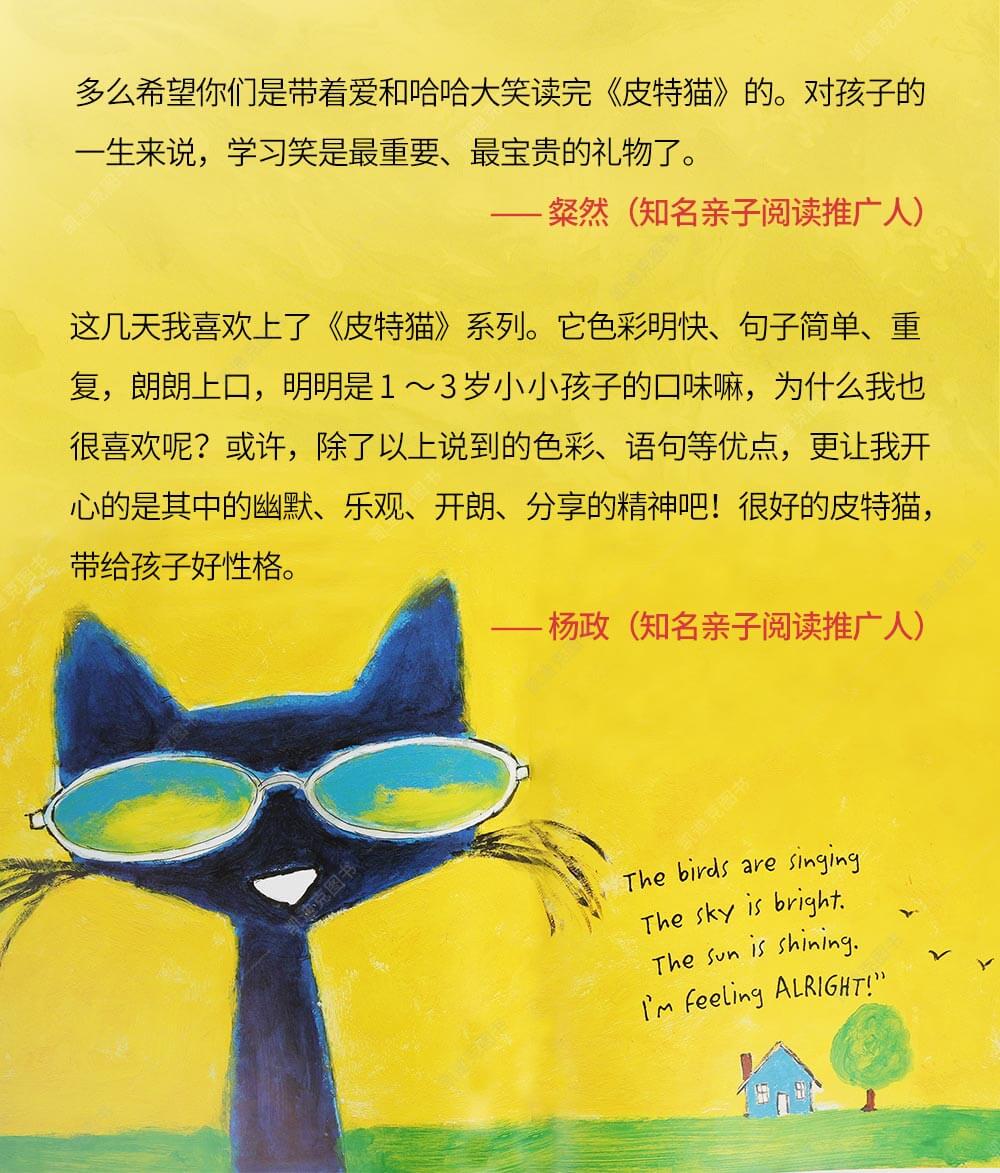 多么希望你们是带着爱和哈哈大笑读完《皮特猫》的。对孩子的
一生来说，学习笑是最重要、最宝贵的礼物了。
—— 粲然（知名亲子阅读推广人）
这几天我喜欢上了《皮特猫》系列。它色彩明快、句子简单、重
复，朗朗上口，明明是1～3岁小小孩子的口味嘛，为什么我也
很喜欢呢？或许，除了以上说到的色彩、语句等优点，更让我开
心的是其中的幽默、乐观、开朗、分享的精神吧！很好的皮特猫，
带给孩子好性格。
—— 杨政（知名亲子阅读推广人）
The birds are singing
The sky is bright.
The sun is shining.
I'm feeling ALRIGHT!"